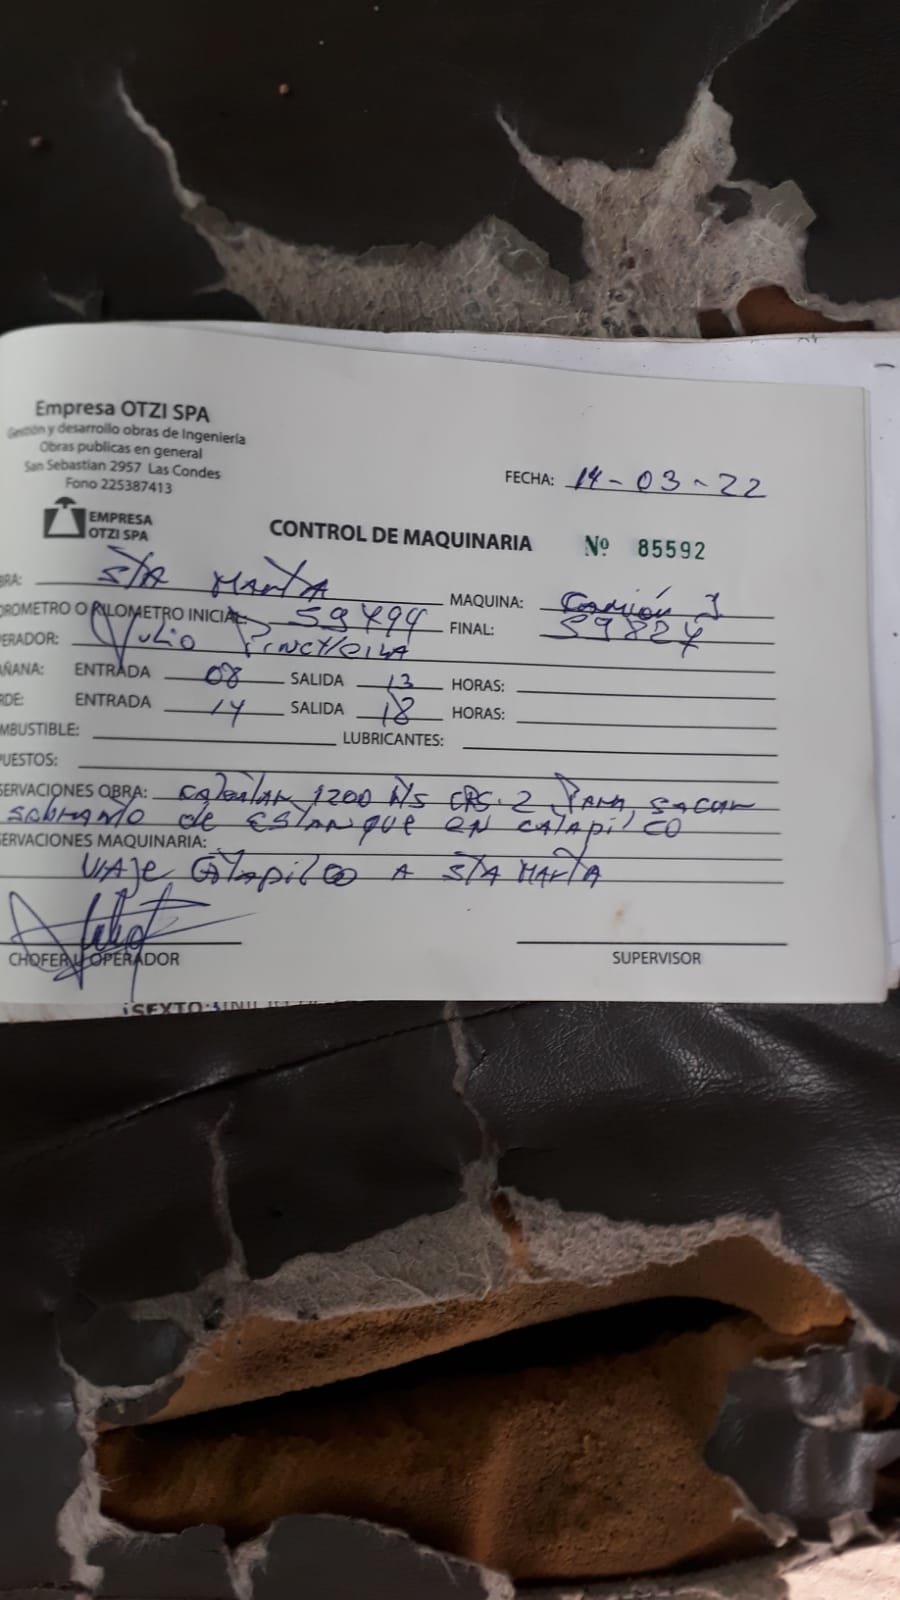 Empresa OTZI SPA
Gestión y desarrollo obras de Ingeniería
Obras publicas en general
San Sebastian 2957 Las Condes
Fono 225387413
FECHA: 14-03-22
EMPRESA
OTZI SPA
CONTROL DE MAQUINARIA Nº 85592
BRA: STA MARTA
MAQUINA: Camión J
OROMETRO O KILOMETRO INICIAL: 59494 FINAL: 59824
ERADOR: Julio
AÑANA: ENTRADA 08 SALIDA 13 HORAS:
RDE: ENTRADA 14 SALIDA 18 HORAS:
MBUSTIBLE: LUBRICANTES:
UESTOS:
SERVACIONES OBRA: 1200 CRS-2 Para, sacar
de EStanque en catapilco
SERVACIONES MAQUINARIA:
viaje Catapilco A STA MARTA
CHOFER U OPERADOR
SUPERVISOR